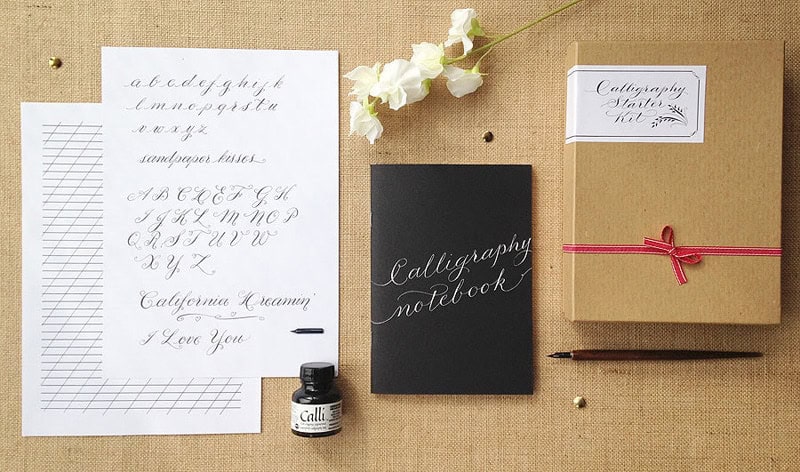 a b c d e f g h i j k
l m n o p q r s t u
v w x y z
sandpaper kisses
A B C D E F G H
I J K L M N O P
Q R S T U V W
X Y Z
California Dreamin'
I Love You
Calli
Calligraphy
notebook
Calligraphy
Starter
Kit